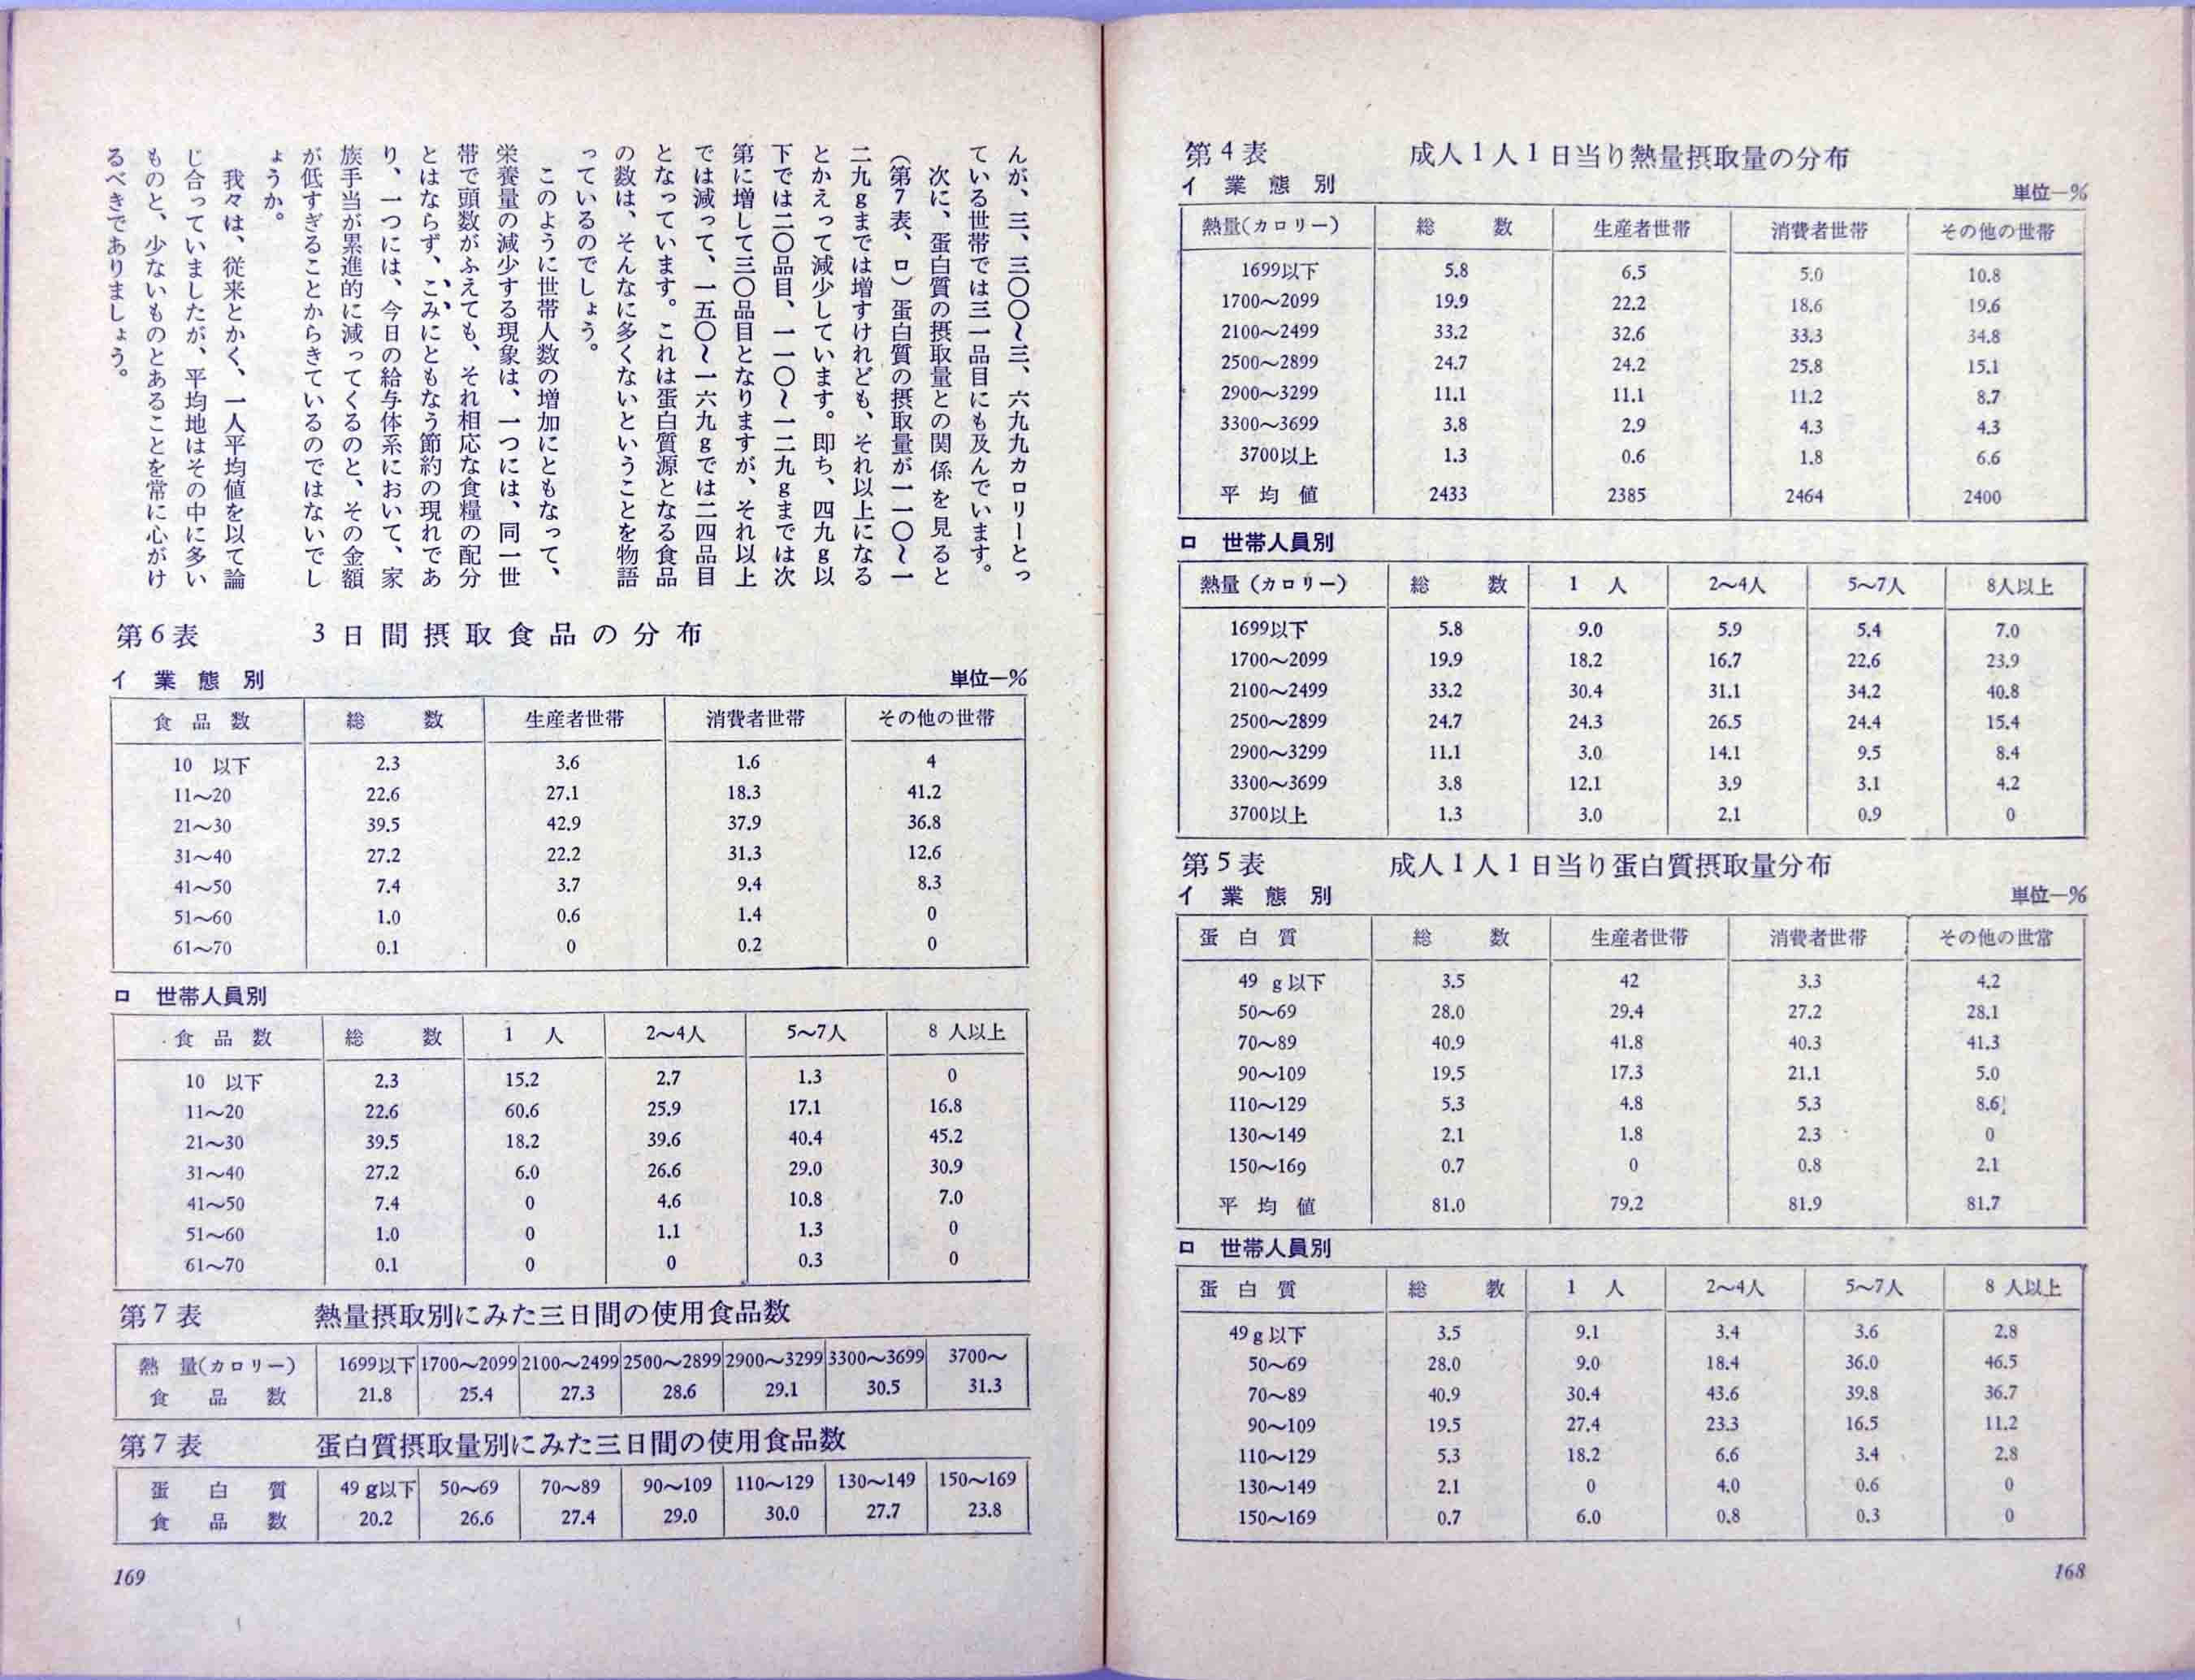 第4表 成人1人1日当り熱量摂取量の分布
イ 業態別 単位—%
熱量(カロリー) 総数 生産者世帯 消費者世帯 その他の世帯
1699以下 5.8 6.5 5.0 10.8
1700〜2099 19.9 22.2 18.6 19.6
2100〜2499 33.2 32.6 33.3 34.8
2500〜2899 24.7 24.2 25.8 15.1
2900〜3299 11.1 11.1 11.2 8.7
3300〜3699 3.8 2.9 4.3 4.3
3700以上 1.3 0.6 1.8 6.6
平均値 2433 2385 2464 2400
ロ 世帯人員別
熱量(カロリー) 総数 1人 2〜4人 5〜7人 8人以上
1699以下 5.8 9.0 5.9 5.4 7.0
1700〜2099 19.9 18.2 16.7 22.6 23.9
2100〜2499 33.2 30.4 31.1 34.2 40.8
2500〜2899 24.7 24.3 26.5 24.4 15.4
2900〜3299 11.1 3.0 14.1 9.5 8.4
3300〜3699 3.8 12.1 3.9 3.1 4.2
3700以上 1.3 3.0 2.1 0.9 0
第5表 成人1人1日当り蛋白質摂取量分布
イ 業態別 単位—%
蛋白質 総数 生産者世帯 消費者世帯 その他の世常
49 g以下 3.5 42 3.3 4.2
50〜69 28.0 29.4 27.2 28.1
70〜89 40.9 41.8 40.3 41.3
90〜109 19.5 17.3 21.1 5.0
110〜129 5.3 4.8 5.3 8.6
130〜149 2.1 1.8 2.3 0
150〜169 0.7 0 0.8 2.1
平均値 81.0 79.2 81.9 81.7
ロ 世帯人員別
蛋白質 総教 1人 2〜4人 5〜7人 8人以上
49g以下 3.5 9.1 3.4 3.6 2.8
50〜69 28.0 9.0 18.4 36.0 46.5
70〜89 40.9 30.4 43.6 39.8 36.7
90〜109 19.5 27.4 23.3 16.5 11.2
110〜129 5.3 18.2 6.6 3.4 2.8
130〜149 2.1 0 4.0 0.6 0
150〜169 0.7 6.0 0.8 0.3 0
168
んが、三、三〇〇〜三、六九九カロリーとっ
ている世帯では三一品目にも及んでいます。
次に、蛋白質の摂取量との関係を見ると
(第7表、ロ)蛋白質の摂取量が一一〇〜一
二九gまでは増すけれども、それ以上になる
とかえって減少しています。即ち、四九g以
下では二〇品目、一一〇〜一二九gまでは次
第に増して三〇品目となりますが、それ以上
では減って、一五〇〜一六九gでは二四品目
となっています。これは蛋白質源となる食品
の数は、そんなに多くないということを物語
っているのでしょう。
このように世帯人数の増加にともなって、
栄養量の減少する現象は、一つには、同一世
帯で頭数がふえても、それ相応な食糧の配分
とはならず、こみにともなう節約の現れであ
り、一つには、今日の給与体系において、家
族手当が累進的に減ってくるのと、その金額
が低すぎることからきているのではないでし
ょうか。
我々は、従来とかく、一人平均値を以て論
じ合っていましたが、平均地はその中に多い
ものと、少ないものとあることを常に心がけ
るべきでありましょう。
第6表 3日間摂取食品の分布
イ 業態別 単位—%
食品数 総数 生産者世帯 消費者世帯 その他の世帯
10 以下 2.3 3.6 1.6 4
11〜20 22.6 27.1 18.3 41.2
21〜30 39.5 42.9 37.9 36.8
31〜40 27.2 22.2 31.3 12.6
41〜50 7.4 3.7 9.4 8.3
51〜60 1.0 0.6 1.4 0
61〜70 0.1 0 0.2 0
ロ 世帯人員別
食品数 総数 1人 2〜4人 5〜7人 8人以上
10 以下 2.3 15.2 2.7 1.3 0
11〜20 22.6 60.6 25.9 17.1 16.8
21〜30 39.5 18.2 39.6 40.4 45.2
31〜40 27.2 6.0 26.6 29.0 30.9
41〜50 7.4 0 4.6 10.8 7.0
51〜60 1.0 0 1.1 1.3 0
61〜70 0.1 0 0 0.3 0
第7表 熱量摂取別にみた三日間の使用食品数
熱量(カロリー) 1699以下 1700〜2099 2100〜2499 2500〜2899 2900〜3299 3300〜3699 3700〜
食品数 21.8 25.4 27.3 28.6 29.1 30.5 31.3
第7表 蛋白質摂取量別にみた三日間の使用食品数
蛋白質 49 g以下 50〜69 70〜89 90〜109 110〜129 130〜149 150〜169
食品数 20.2 26.6 27.4 29.0 30.0 27.7 23.8
169